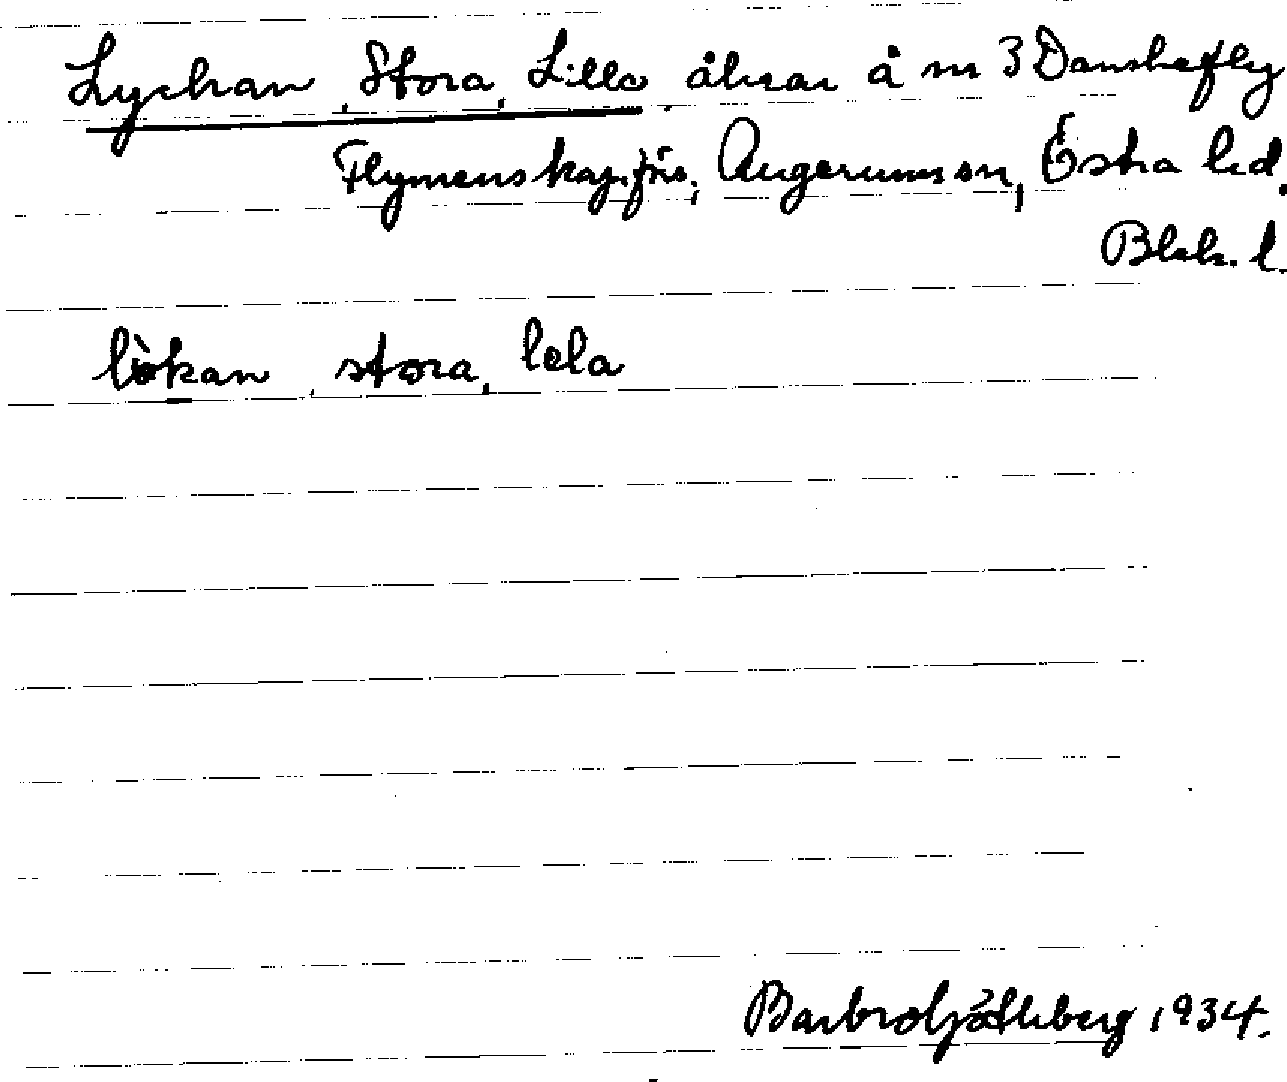 Lyckan, Stora, Lilla åkrar å nr 3 Danskefly
Flymens kap.förs., Augerums sn, Östra hd,
Blek. l.
lökan, stora, lela
Barbro Ljöthberg 1934.